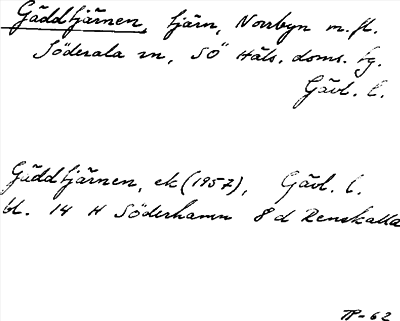 Gäddtjärnen, tjärn, Norrbyn m. fl.
Söderala sn, SÖ Häls. doms. tg.
Gävl. l.
Gäddtjärnen, ek (1957), Gävl. l.
bl. 14 H Söderhamn 8 d Renskalla
TP-62